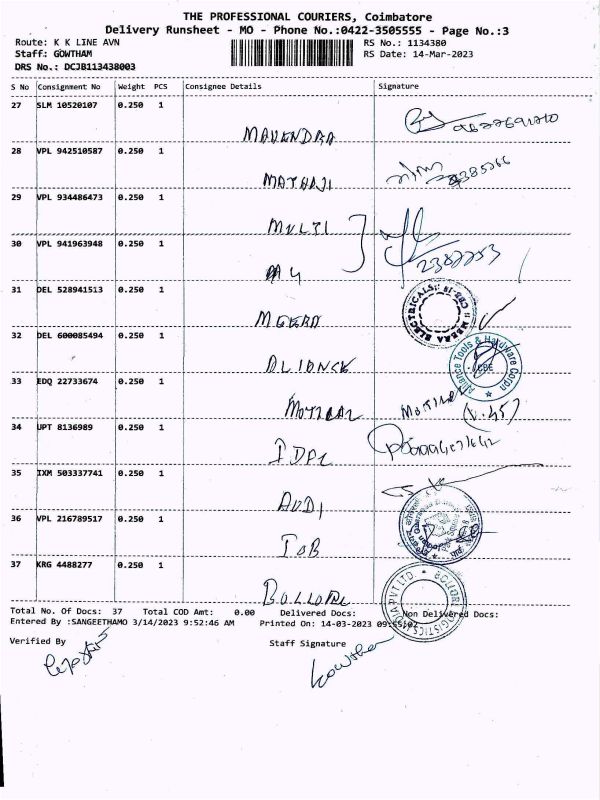 THE PROFESSIONAL COURIERS, Coimbatore
Delivery Runsheet - MO - Phone No.:0422-3505555 - Page No.:3
Route: K K LINE AVN
RS No.: 1134380
Staff: GOWTHAM
RS Date: 14-Mar-2023
DRS No.: DCJB113438003
S No Consignment No Weight PCS Consignee Details Signature
27 SLM 10520107 0.250 1
MAHENDRA
28 VPL 942510587 0.250 1
MATHAJI
29 VPL 934486473 0.250 1
MULTI
30 VPL 941963948 0.250 1
2382253
31 DEL 528941513 0.250 1
MEERA
MEERA ELECTRICALS
32 DEL 600085494 0.250 1
ALIANCE
Alliance Tools & Hardware Corpn
CBE
33 EDQ 22733674 0.250 1
MOTILAL
34 UPT 8136989 0.250 1
IDPL
35 IXM 503337741 0.250 1
AUDI
36 VPL 216789517 0.250 1
IOB
37 KRG 4488277 0.250 1
BOLLORE
Total No. Of Docs: 37 Total COD Amt: 0.00 Delivered Docs: Non Delivered Docs:
Entered By :SANGEETHAMO 3/14/2023 9:52:46 AM Printed On: 14-03-2023
Verified By Staff Signature
Gowtham